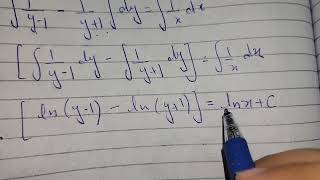 ∫ 1/(y-1) - 1/(y+1) dy = ∫ 1/x dx
[ ∫ 1/(y-1) dy - ∫ 1/(y+1) dy ] = ∫ 1/x dx
[ ln(y-1) - ln(y+1) ] = lnx + C